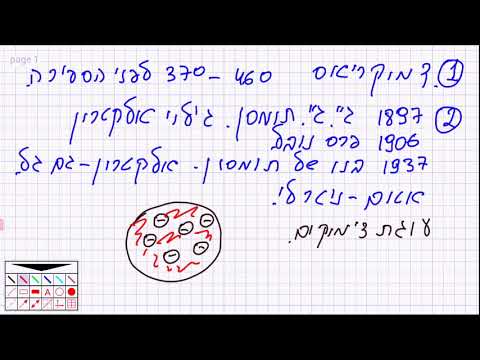 page 1
① דמוקריטוס 460 – 370 לפני הספירה.
② 1897 ג'.ג'. תומסון. גילוי אלקטרון
1906 פרס נובל
1937 בנו של תומסון. אלקטרון – גם גל.
אטום – ניטרלי.
עוגת צימוקים.